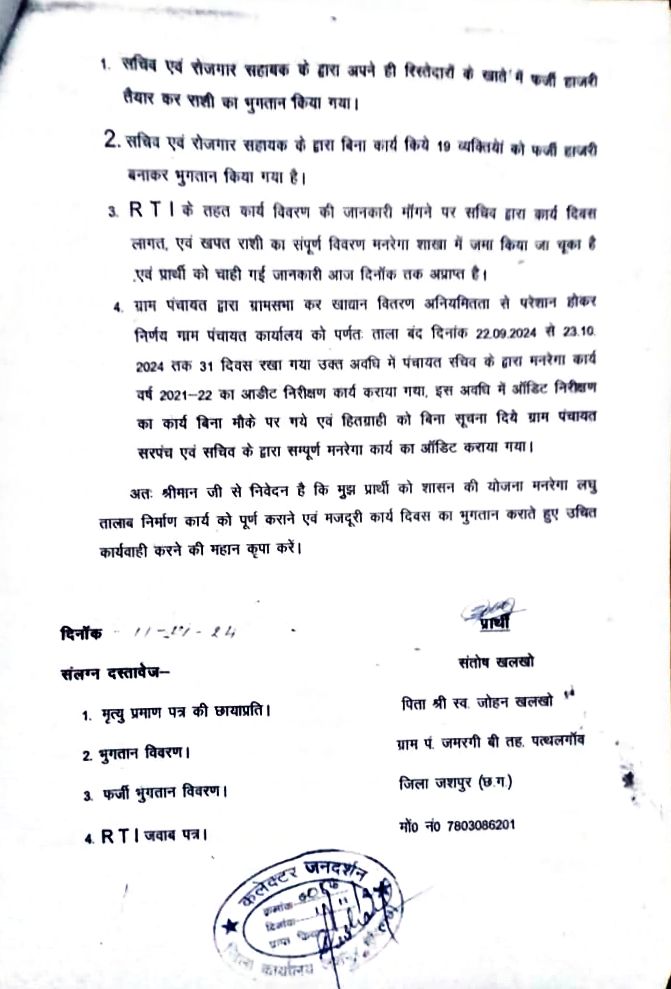 1. सचिव एवं रोजगार सहायक के द्वारा अपने ही रिस्तेदारों के खाते में फर्जी हाजरी
तैयार कर राशी का भुगतान किया गया।
2. सचिव एवं रोजगार सहायक के द्वारा बिना कार्य किये 19 व्यक्तियों को फर्जी हाजरी
बनाकर भुगतान किया गया है।
3. RTI के तहत कार्य विवरण की जानकारी मॉगने पर सचिव द्वारा कार्य दिवस
लागत, एवं खपत राशी का संपूर्ण विवरण मनरेगा शाखा में जमा किया जा चूका है
एवं प्रार्थी को चाही गई जानकारी आज दिनॉक तक अप्राप्त है।
4. ग्राम पंचायत द्वारा ग्रामसभा कर खाद्यान वितरण अनियमितता से परेशान होकर
निर्णय गाम पंचायत कार्यालय को पर्णतः ताला बंद दिनांक 22.09.2024 से 23.10.
2024 तक 31 दिवस रखा गया उक्त अवधि में पंचायत सचिव के द्वारा मनरेगा कार्य
वर्ष 2021-22 का आडीट निरीक्षण कार्य कराया गया, इस अवधि में ऑडिट निरीक्षण
का कार्य बिना मौके पर गये एवं हितग्राही को बिना सूचना दिये ग्राम पंचायत
सरपंच एवं सचिव के द्वारा सम्पूर्ण मनरेगा कार्य का ऑडिट कराया गया।
अतः श्रीमान जी से निवेदन है कि मुझ प्रार्थी को शासन की योजना मनरेगा लघु
तालाब निर्माण कार्य को पूर्ण कराने एवं मजदूरी कार्य दिवस का भुगतान कराते हुए उचित
कार्यवाही करने की महान कृपा करें।
दिनॉक
प्रार्थी
संतोष खलखो
संलग्न दस्तावेज–
पिता श्री स्व. जोहन खलखो
1. मृत्यु प्रमाण पत्र की छायाप्रति।
ग्राम पं. जमरगी बी तह. पत्थलगॉव
2. भुगतान विवरण।
जिला जशपुर (छ.ग.)
3. फर्जी भुगतान विवरण।
मों0 नं0 7803086201
4. RTI जवाब पत्र।
कलेक्टर जनदर्शन
क्रमांक
दिनांक